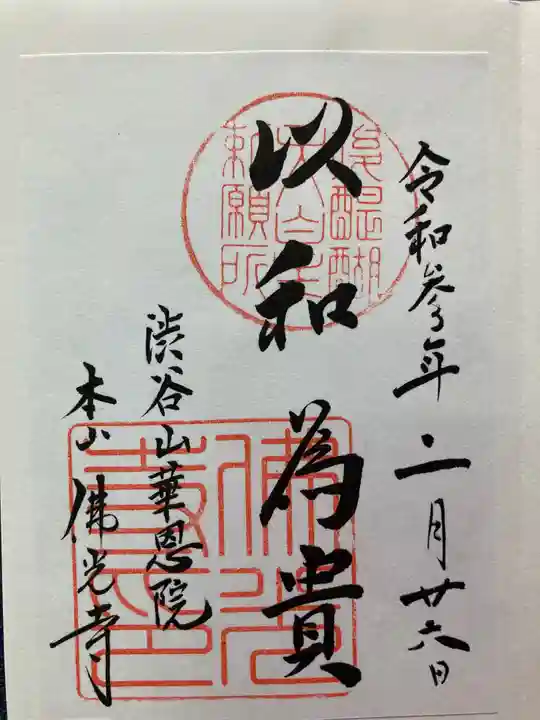 令和参年二月廿六日
後醍醐
天皇
勅願所
以和為貴
渋谷山華恩院
本山佛光寺